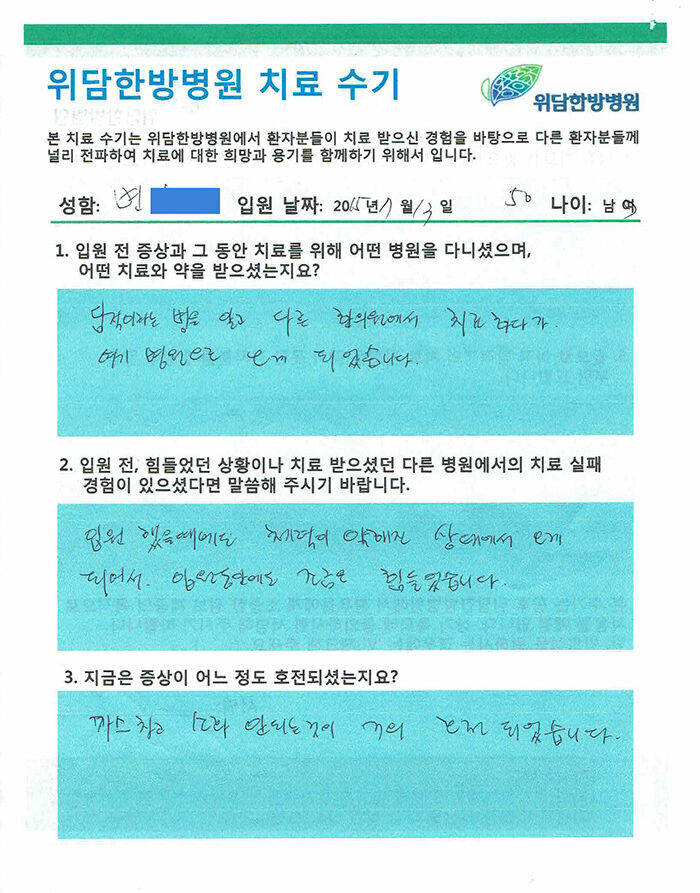 위담한방병원 치료 수기
위담한방병원
본 치료 수기는 위담한방병원에서 환자분들이 치료 받으신 경험을 바탕으로 다른 환자분들께
널리 전파하여 치료에 대한 희망과 용기를 함께하기 위해서 입니다.
성함: 변 입원 날짜: 2015년 1월 13일 50 나이: 남 여
1. 입원 전 증상과 그 동안 치료를 위해 어떤 병원을 다니셨으며,
어떤 치료와 약을 받으셨는지요?
담적이라는 병을 알고 다른 한의원에서 치료 하다가.
여기 병원으로 오게 되었습니다.
2. 입원 전, 힘들었던 상황이나 치료 받으셨던 다른 병원에서의 치료 실패
경험이 있으셨다면 말씀해 주시기 바랍니다.
입원 했을때에도 체력이 약해진 상태에서 오게
되어서. 입원동안에도 조금은 힘들었습니다.
3. 지금은 증상이 어느 정도 호전되셨는지요?
까스차고 소화 안되는것이 거의 호전 되었습니다.